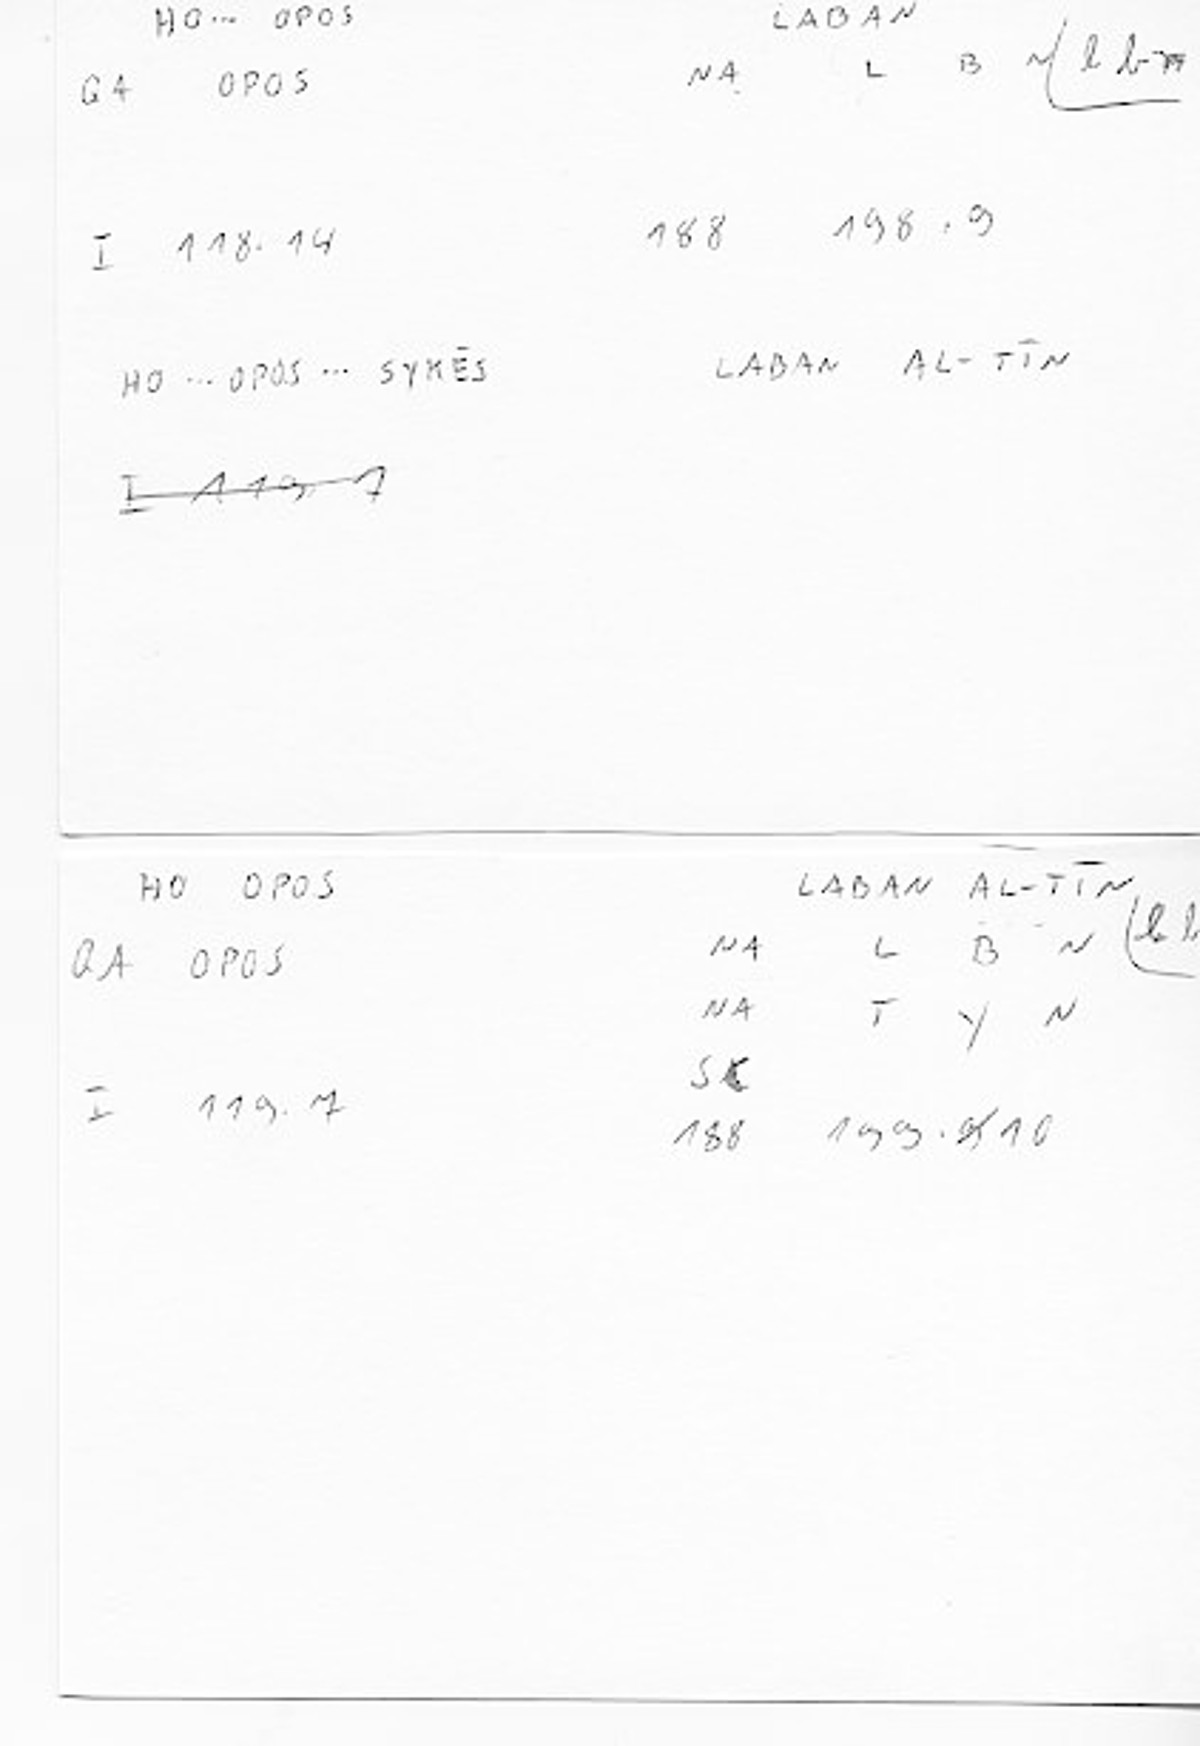 HO... OPOS LABAN
QA OPOS NA L B N
I 118.14 188 198.9
HO ... OPOS ... SYKĒS LABAN AL-TĪN
I 119.7
HO OPOS LABAN AL-TĪN
QA OPOS NA L B N
NA T Y N
SK
I 119.7 188 199.10